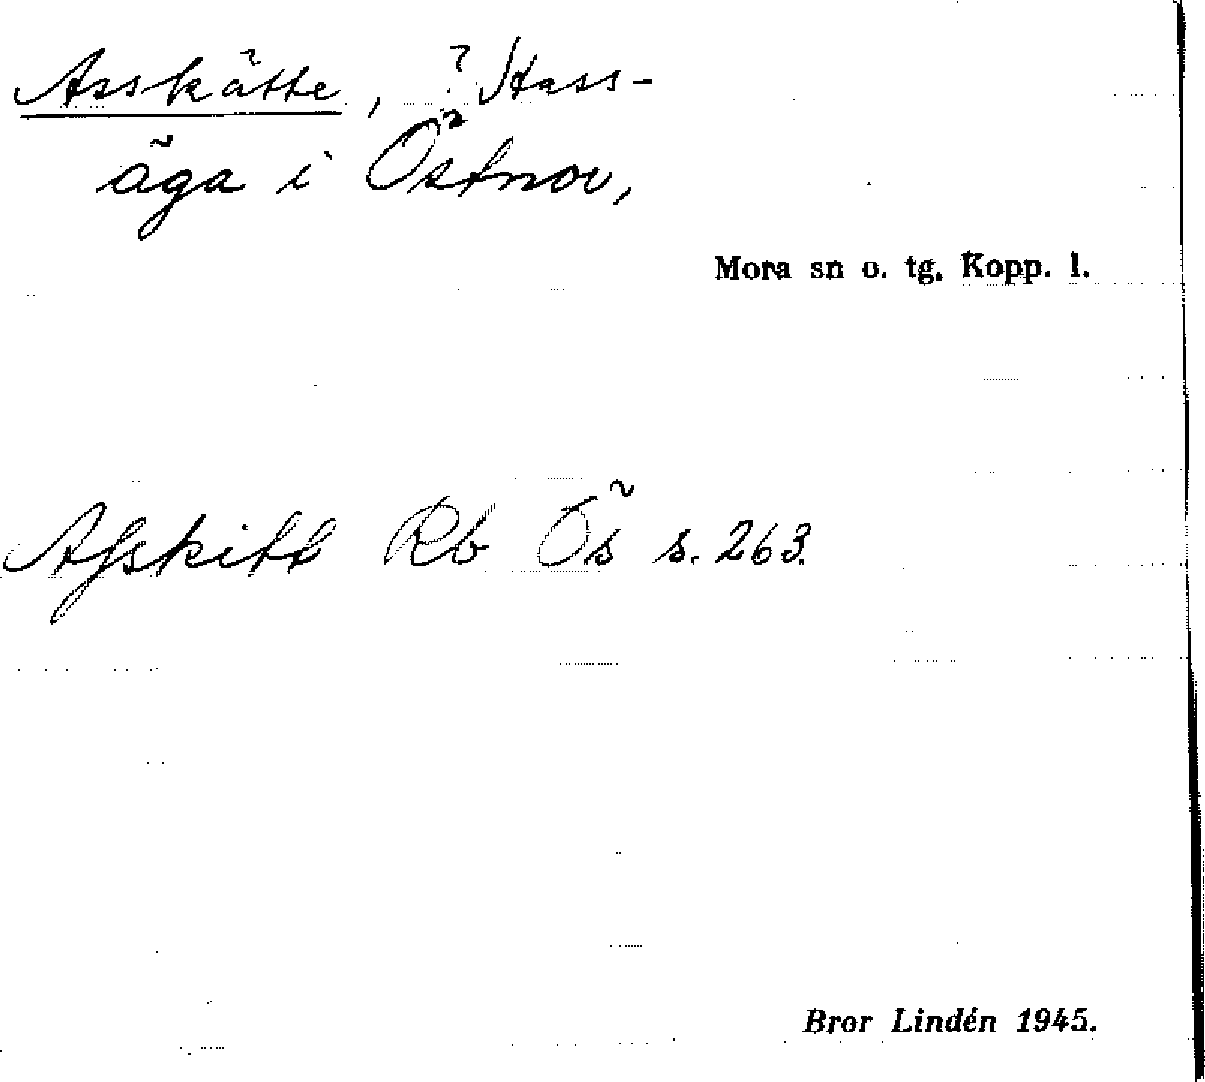 Asskätte, ? Hass-
äga i Östnor,
Mora sn o. tg. Kopp. l.
Afskitt Rb Ös s. 263.
Bror Lindén 1945.